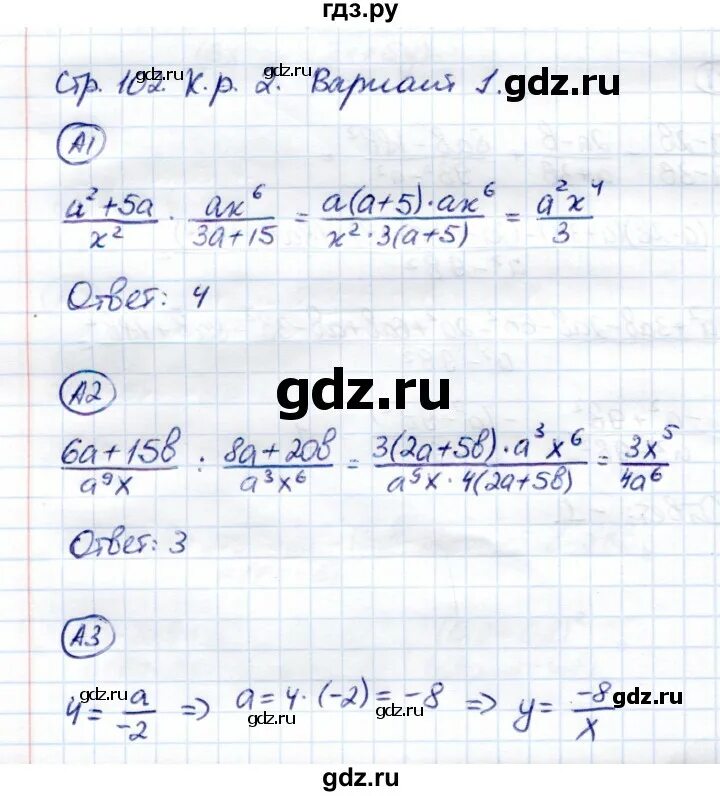 гдз.ру
Стр. 102. К.р. 2. Вариант 1.
gdz.ru
gdz.ru
A1
(a² + 5a)/x² · ax⁶/(3a+15) = a(a+5)·ax⁶/(x²·3(a+5)) = a²x⁴/3
Ответ: 4
gdz.ru
A2
(6a+15b)/(a⁹x) : (8a+20b)/(a³x⁶) = 3(2a+5b)·a³x⁶/(a⁹x·4(2a+5b)) = 3x⁵/4a⁶
Ответ: 3
A3
gdz.ru
4 = a/-2 => a = 4·(-2) = -8 => y = -8/x
gdz.ru
gdz.ru
gdz.ru
gdz.ru